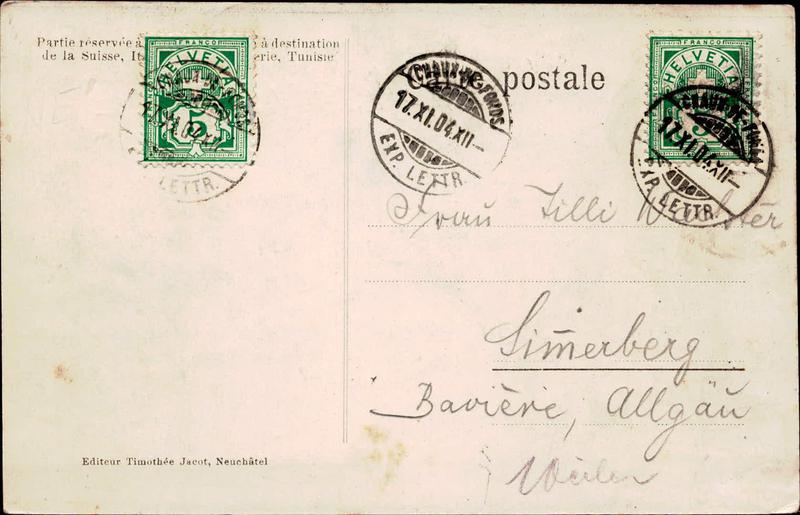 Partie réservée à à destination
de la Suisse, It rie, Tunisie
Carte postale
FRANCO
HELVETIA
5
LETTR.
CHAUX-DE-FONDS
17.XI.04.XII–
EXP. LETTR.
FRANCO
HELVETIA
CHAUX-DE-FONDS
17.XI.04.XII–
EXP. LETTR.
Frau Tilli
Sim̄erberg
Bavière, Allgäu
Weiler
Editeur Timothée Jacot, Neuchâtel